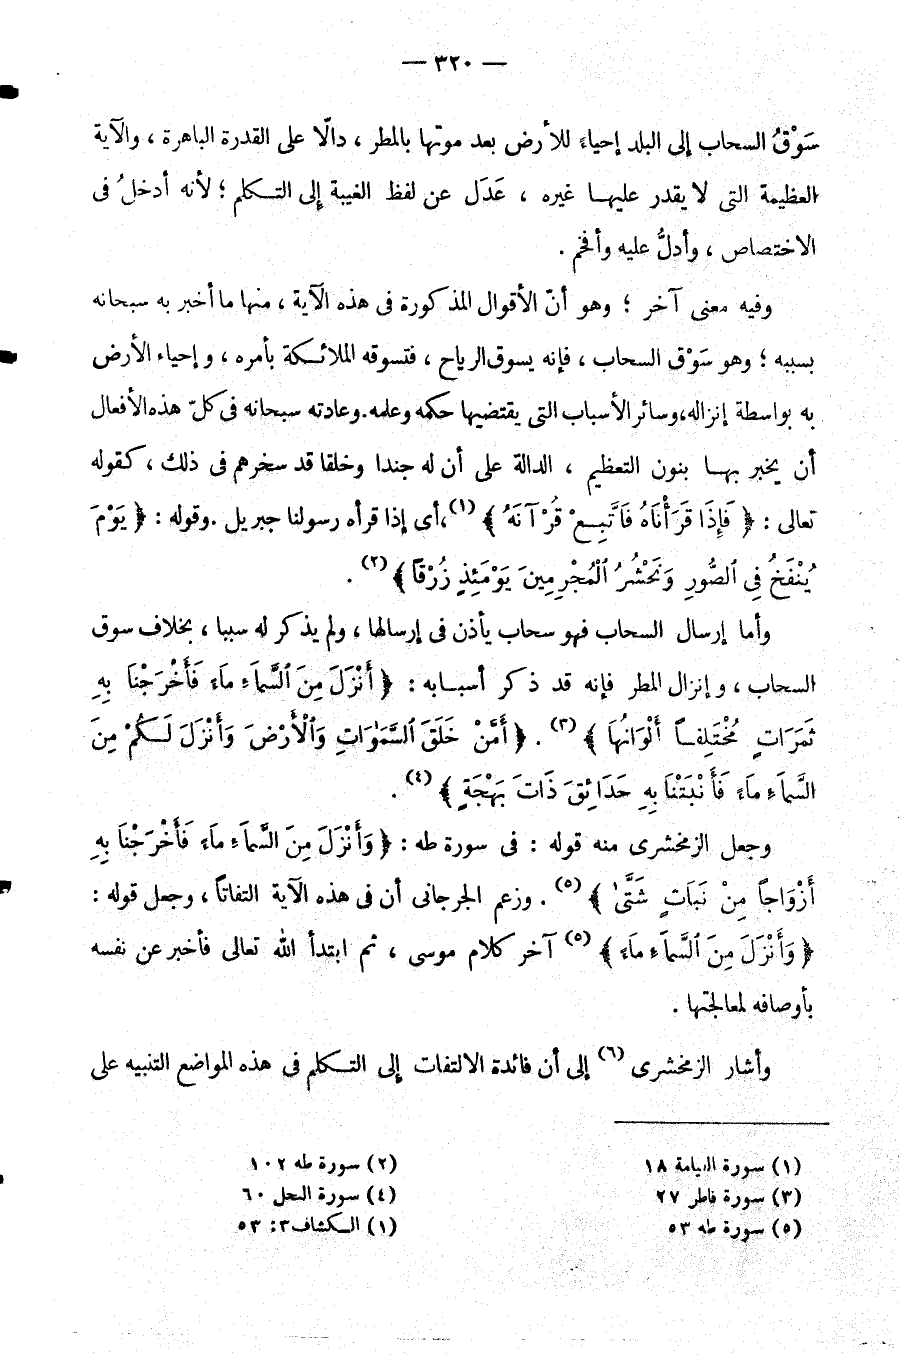 — ٣٢٠ —
سَوْقُ السحاب إلى البلد إحياءً للأرض بعد موتها بالمطر ، دالًّا على القدرة الباهرة ، والآية
العظيمة التى لا يقدر عليها غيره ، عَدَل عن لفظ الغيبة إلى التكلم ؛ لأنه أدخلُ فى
الاختصاص ، وأدلُّ عليه وأفخم .
وفيه معنى آخر ؛ وهو أنّ الأقوال المذكورة فى هذه الآية ، منها ما أخبر به سبحانه
بسببه ؛ وهو سَوْق السحاب ، فإنه يسوق الرياح ، فتسوقه الملائكة بأمره ، وإحياء الأرض
به بواسطة إنزاله، وسائر الأسباب التى يقتضيها حكمه وعلمه. وعادته سبحانه فى كلّ هذه الأفعال
أن يخبر بها بنون التعظيم ، الدالة على أن له جندا وخلقا قد سخرهم فى ذلك ، كقوله
تعالى : ﴿ فَإِذَا قَرَأْنَاهُ فَاتَّبِعْ قُرْآنَهُ ﴾(١)، أى إذا قرأه رسولنا جبريل . وقوله : ﴿ يَوْمَ
يُنْفَخُ فِى ٱلصُّورِ وَنَحْشُرُ ٱلْمُجْرِمِينَ يَوْمَئِذٍ زُرْقًا ﴾(٢) .
وأما إرسال السحاب فهو سحاب يأذن فى إرسالها ، ولم يذكر له سببا ، بخلاف سوق
السحاب ، وإنزال المطر فإنه قد ذكر أسبابه : ﴿ أَنْزَلَ مِنَ ٱلسَّمَاءِ مَاءً فَأَخْرَجْنَا بِهِ
ثَمَرَاتٍ مُخْتَلِفاً أَلْوَانُهَا ﴾(٣) . ﴿ أَمَّنْ خَلَقَ ٱلسَّمَوَاتِ وَٱلْأَرْضَ وَأَنْزَلَ لَكُمْ مِنَ
السَّمَاءِ مَاءً فَأَنْبَتْنَا بِهِ حَدَائِقَ ذَاتَ بَهْجَةٍ ﴾(٤) .
وجعل الزمخشرى منه قوله : فى سورة طه : ﴿ وَأَنْزَلَ مِنَ السَّمَاءِ مَاءً فَأَخْرَجْنَا بِهِ
أَزْوَاجاً مِنْ نَبَاتٍ شَتَّىٰ ﴾(٥) . وزعم الجرجانى أن فى هذه الآية التفاتاً ، وجعل قوله :
﴿ وَأَنْزَلَ مِنَ ٱلسَّمَاءِ مَاءً ﴾(٥) آخر كلام موسى ، ثم ابتدأ الله تعالى فأخبر عن نفسه
بأوصافه لمعالجتها .
وأشار الزمخشرى(٦) إلى أن فائدة الالتفات إلى التكلم فى هذه المواضع التنبيه على
(١) سورة القيامة ١٨
(٢) سورة طه ١٠٢
(٣) سورة فاطر ٢٧
(٤) سورة النحل ٦٠
(٥) سورة طه ٥٣
(١) الكشاف ٣: ٥٣